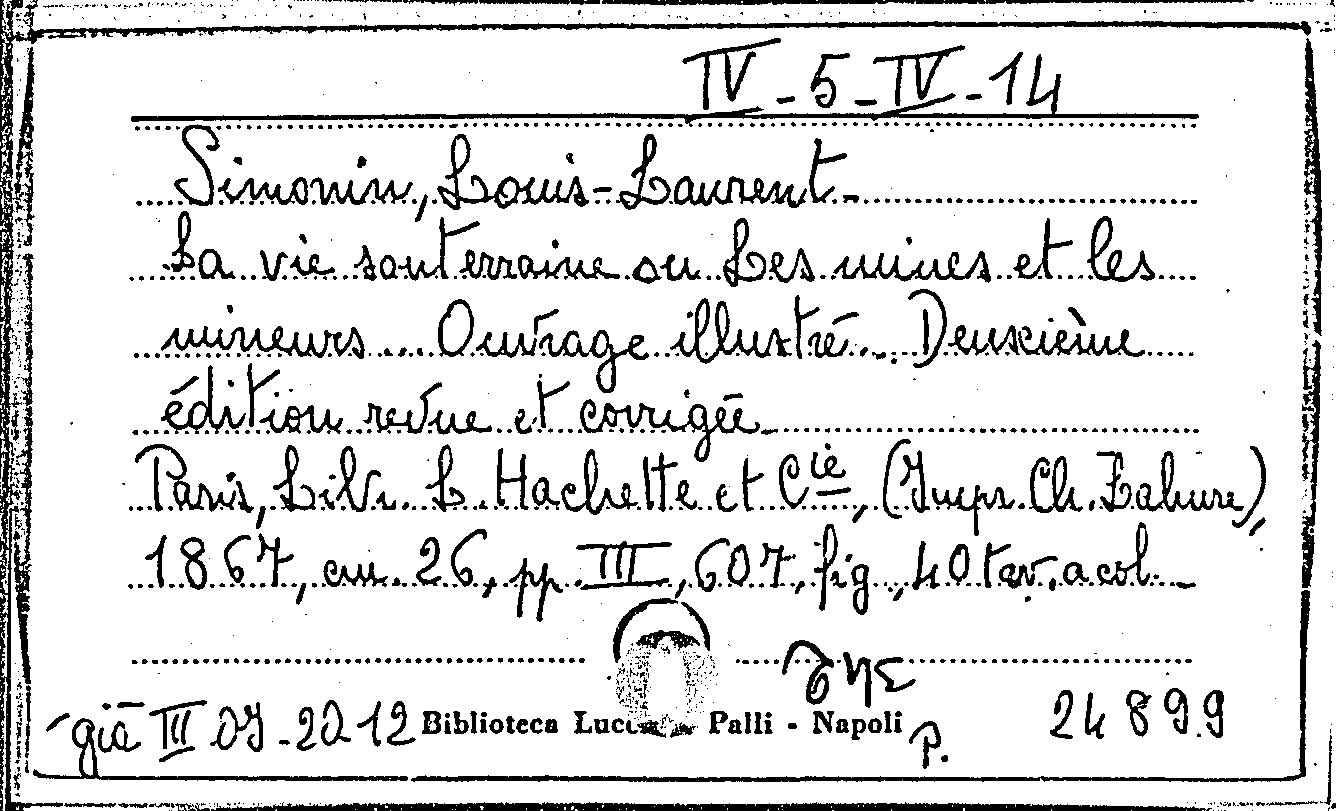 IV - 5 - IV - 14
Simonin, Louis-Laurent -
La vie souterraine ou Les mines et les
mineurs ... Ouvrage illustré ... Deuxième
édition revue et corrigée -
Paris, Libr. L. Hachette et Cie, (Impr. Ch. Lahure),
1867, cm. 26, pp. III, 607, fig., 40 tav. a col. -
già III 20 12 Biblioteca Palli - Napoli P. 24899